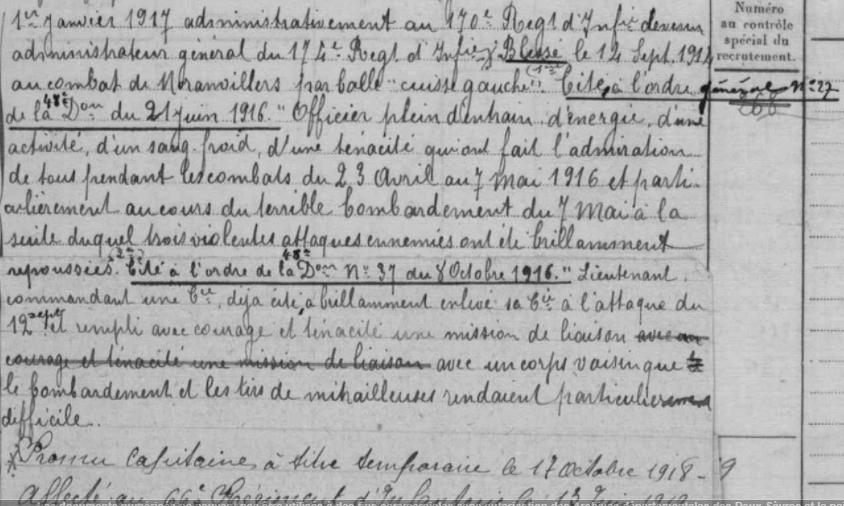 1er janvier 1917 administrativement au 170e Regt d'Infie devenu
administrateur général du 174e Regt d'Infie Blessé le 12 Sept. 1914
au combat de par balle "cuisse gauche" (1ere) Cité à l'ordre général No 27
de la 48e Don du 21 juin 1916. "Officier plein d'entrain, d'énergie, d'une
activité, d'un sang-froid, d'une ténacité qui ont fait l'admiration
de tous pendant les combats du 23 Avril au 7 Mai 1916 et parti-
culièrement au cours du terrible bombardement du 7 Mai à la
suite duquel trois violentes attaques ennemies ont été brillamment
repoussées. (2e) Cité à l'ordre de la 48e Don No 37 du 8 Octobre 1916. "Lieutenant
commandant une Cie, déjà cité, a brillamment enlevé sa Cie à l'attaque du
12 sept et rempli avec courage et ténacité une mission de liaison avec un
courage et ténacité une mission de liaison avec un corps voisin que
le bombardement et les tirs de mitrailleuses rendaient particulierement
difficile.
Promu Capitaine à titre temporaire le 17 Octobre 1918 - 9
Affecté au 66e Régiment d'Infanterie le 13 Juin 1919
Numéro
au contrôle
spécial du
recrutement.